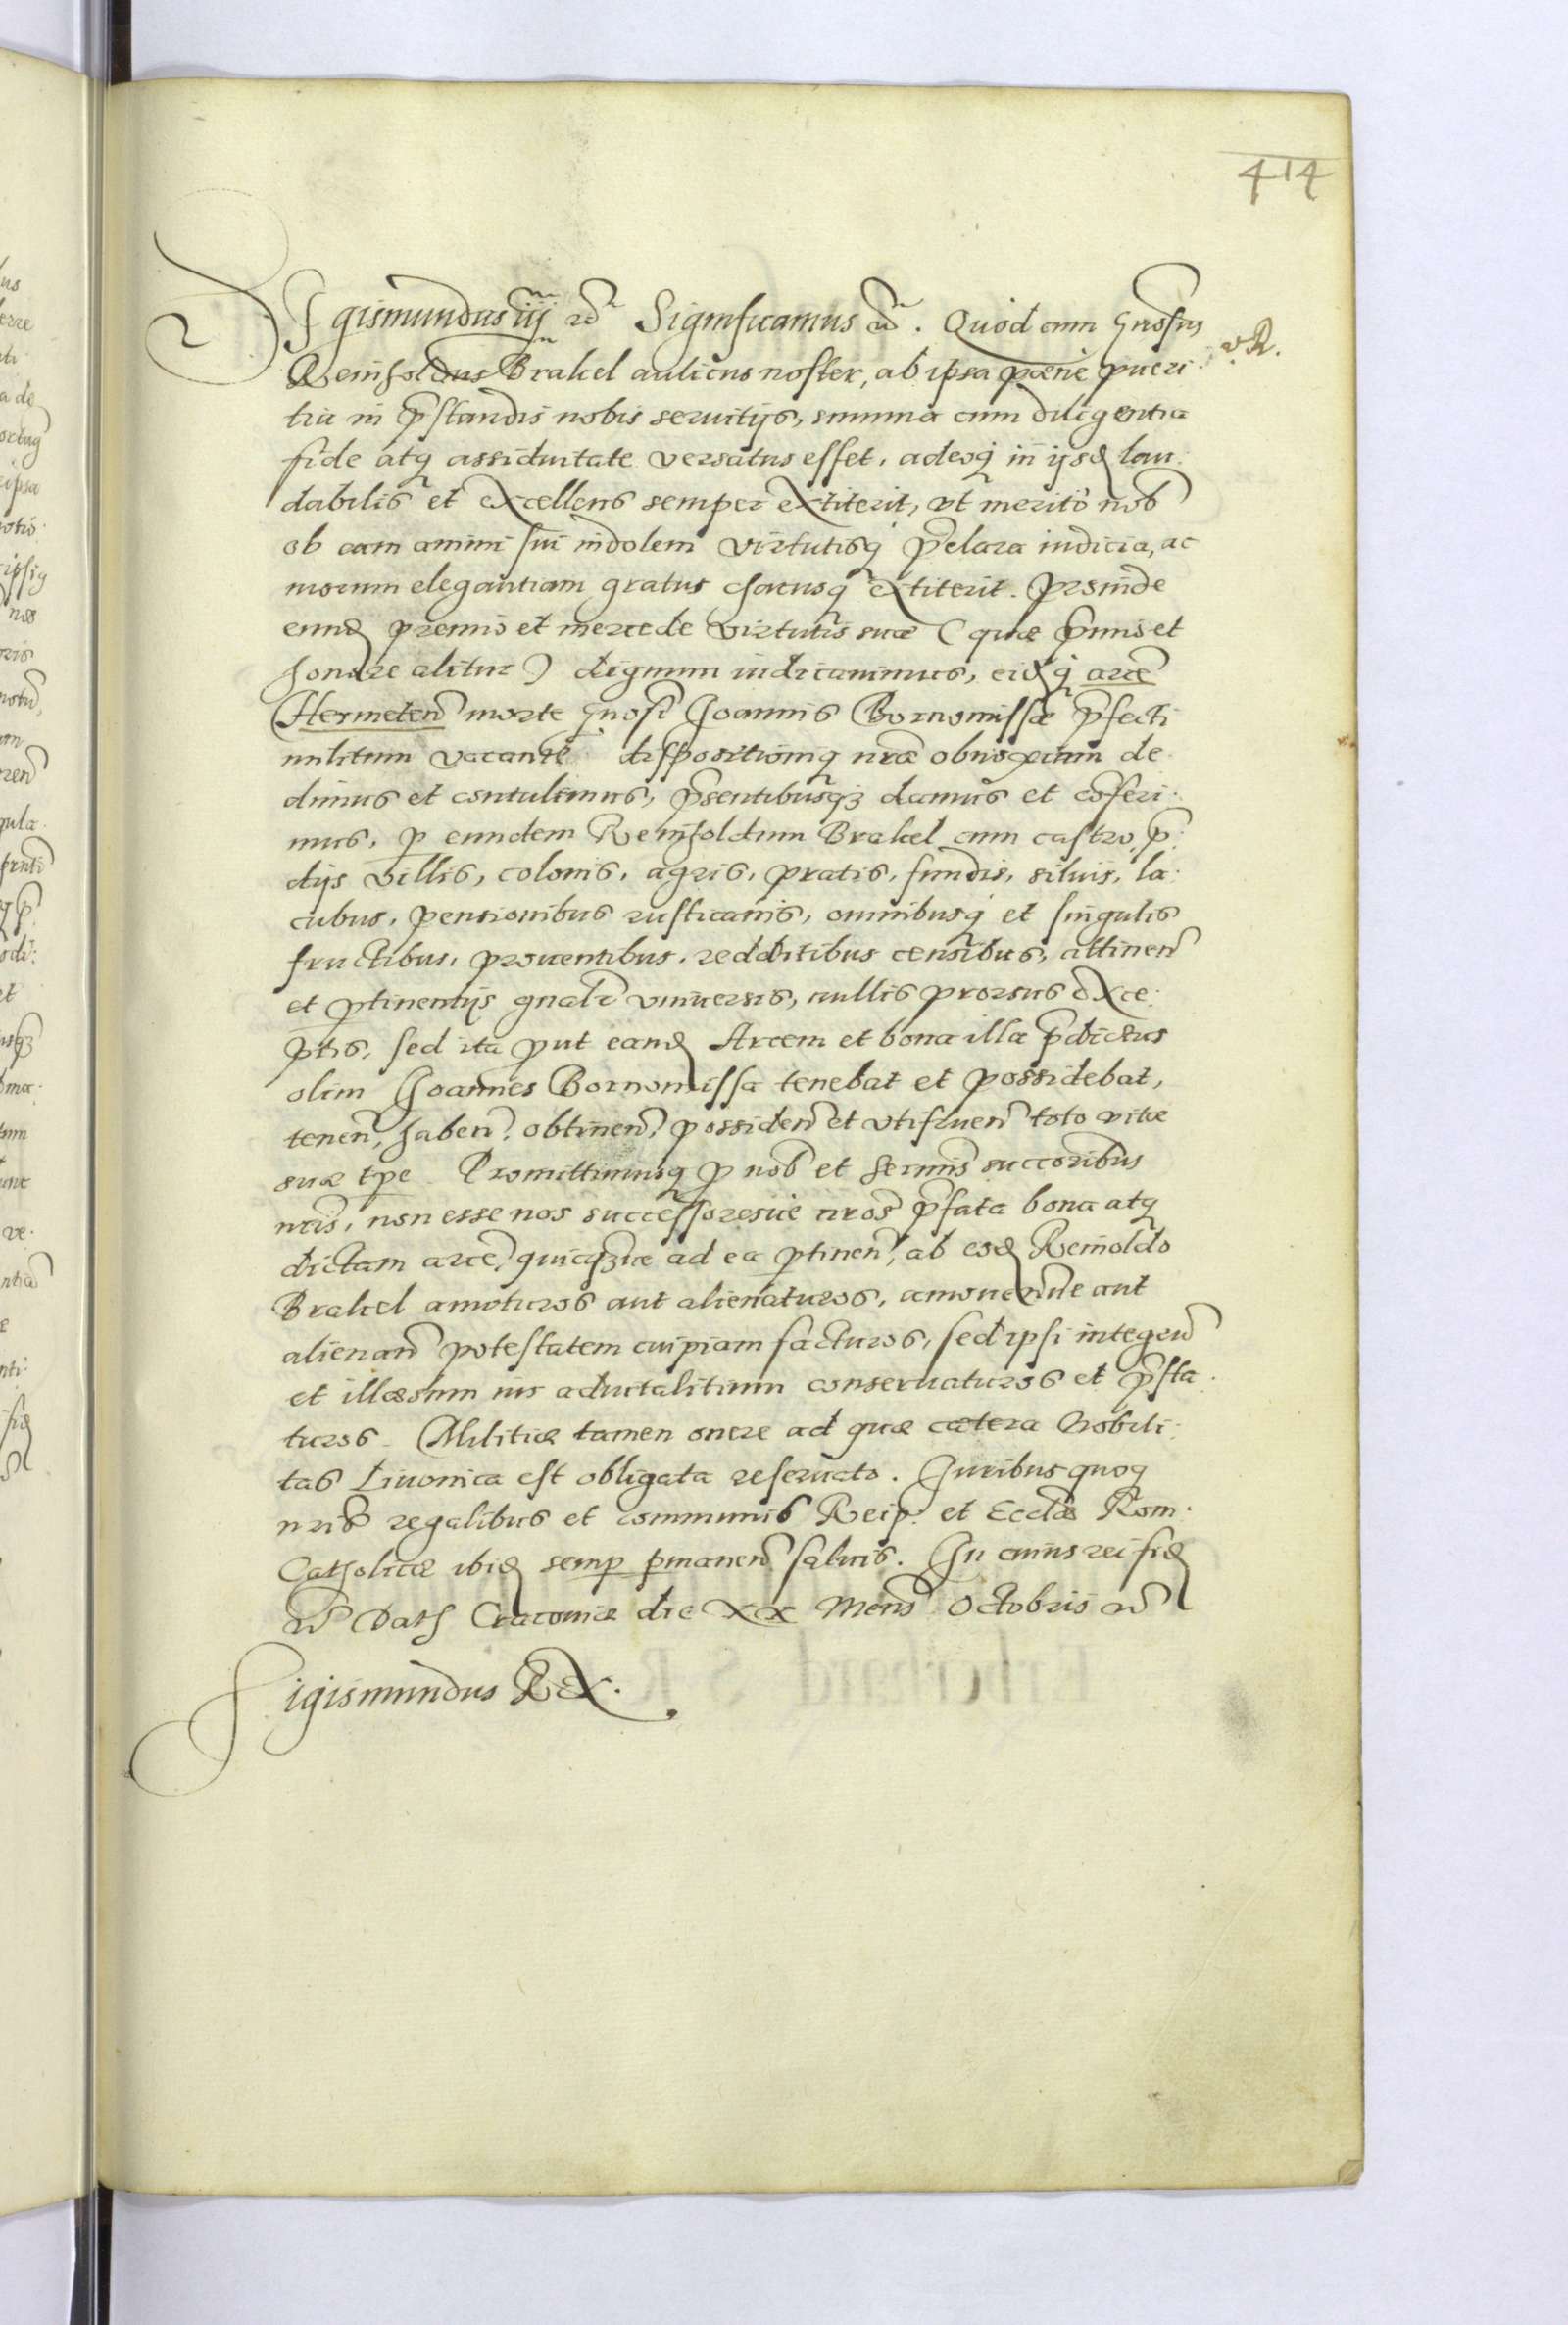 414
Sigismundus iij etc Significamus etc. Quod cum Gnosus
v. R.
Reinholdus Brakel aulicus noster, ab ipsa pæne pueri:
tia in pstandis nobis seruitijs, summa cum diligentia
fide atq assiduitate versatus esset, adeoq in ijsd lau:
dabilis et excellens semper extiterit, vt merito nob
ob eam animi sui indolem virtutisq pclara indicia, ac
morum elegantiam gratus charusq extiterit. Proinde
eund premio et mercede virtutis suæ (quæ pmio et
honore alitur) dignum iudicauimus, eidq arcē
Hermeten morte Gnosi Joannis Bornomissæ pfecti
militum vacantē dispositioniq nræ obnoxiam de:
dimus et contulimus, psentibusqz damus et coferi:
mus, p eundem Reinholdum Brakel cum castro, p:
dijs villis, colonis, agris, pratis, fundis, siluis, la:
cubus, pensionibus rusticanis, omnibusq et singulis
fructibus, prouentibus, redditibus censibus, attinen
et ptinentijs gnalr vniuersis, nullis prorsus exce:
ptis, sed ita put eand Arcem et bona illa pdictus
olim Joannes Bornomissa tenebat et possidebat,
tenen, haben, obtinen, possiden et vtifruen toto vitæ
suæ tpe. Promittimusq p nob et sermis succoribus
nris, non esse nos successoresue nros pfata bona atq
dictam arcē, quicqzue ad ea ptinen, ab eod Reinoldo
Brakel amoturos aut alienaturos, amouendue aut
alienan potestatem cuipiam facturos, sed ipsi integrū
et illæsum ius aduitalitium conseruaturos et psta:
turos. Militiæ tamen onere ad quæ cætera Nobili:
tas Liuonica est obligata reseruato. Juribus quoq
nris regalibus et communis Reip. et Ecclæ Rom.
Catholicæ ibid semp pmanen saluis. In cuius rei fid
etc Dat Cracouiæ die XX Mens Octobris etc
Sigismundus Rex.